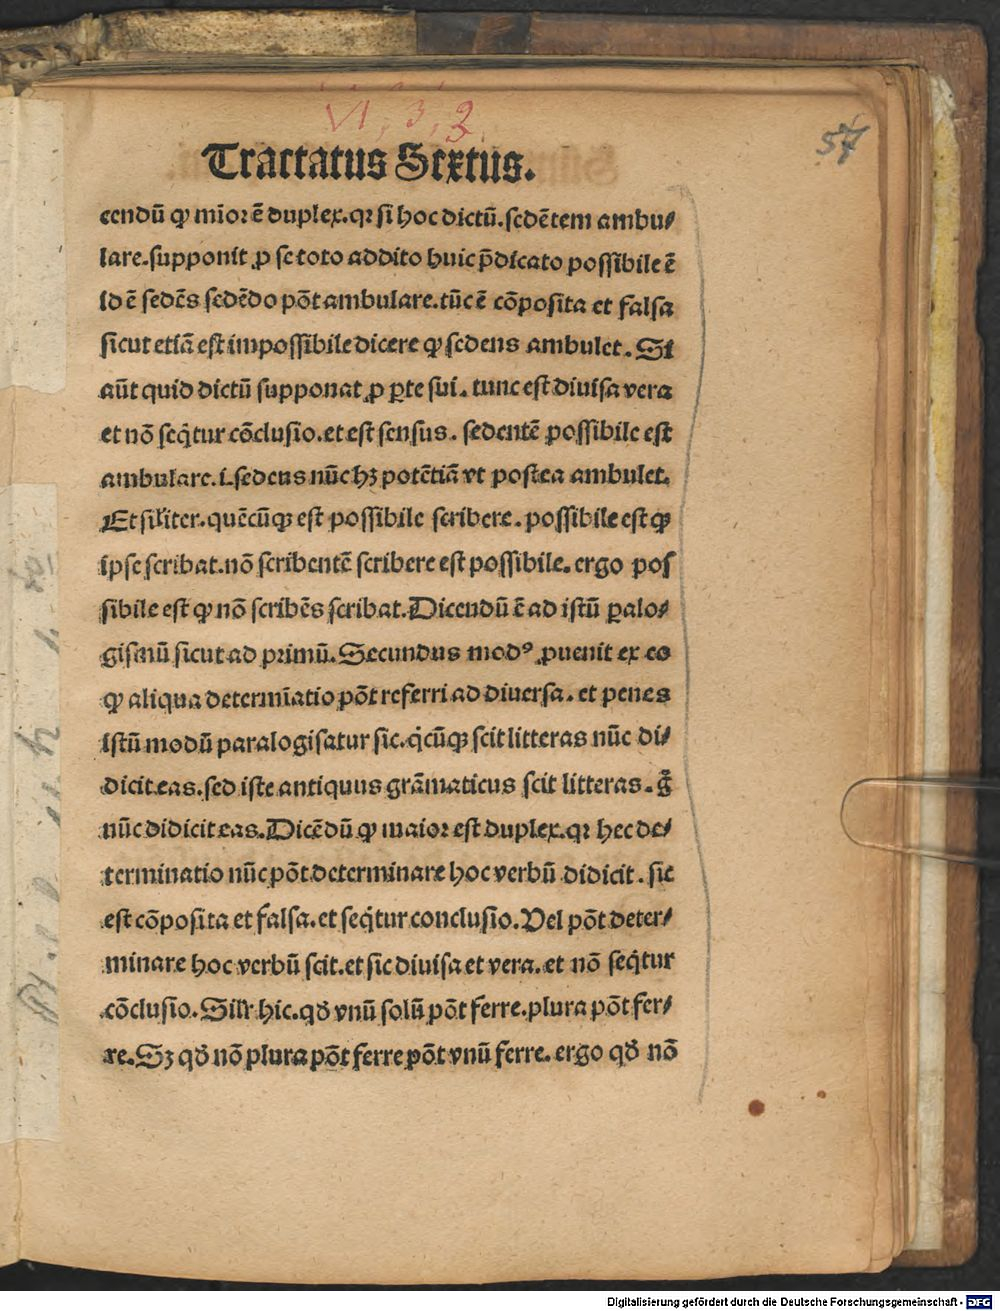 VI, 3, 2.
57
Tractatus Sextus.
cendū ꝙ mioꝛ ē duplex. qꝛ si hoc dictū. sedētem ambu⸗
lare. supponit ꝓ se toto addito huic p̄dicato possibile ē
id ē sedēs sedēdo pōt ambulare. tūc ē cōposita et falsa
sicut etiā est impossibile dicere ꝙ sedens ambulet. Si
aūt quid dictū supponat ꝓ ꝑte sui. tunc est diuisa vera
et nō seq̄tur cōclusio. et est sensus. sedentē possibile est
ambulare. i. sedens nūc hꝫ potētiā vt postea ambulet.
Et siłiter. quēcūqꝫ est possibile scribere. possibile est ꝙ
ipse scribat. nō scribentē scribere est possibile. ergo pos
sibile est ꝙ nō scribēs scribat. Dicendū ē ad istū ꝑalo⸗
gismū sicut ad pꝛimū. Secundus modꝰ ꝓuenit ex eo
ꝙ aliqua determīatio pōt referri ad diuersa. et penes
istū modū paralogisatur sic. q̇cūqꝫ scit litteras nūc di⸗
dicit eas. sed iste antiquus grāmaticus scit litteras. g̃
nūc didicit eas. Dicēdū ꝙ maioꝛ est duplex. qꝛ hec de⸗
terminatio nūc pōt determinare hoc verbū didicit. sic
est cōposita et falsa. et seq̄tur conclusio. Vel pōt deter⸗
minare hoc verbū scit. et sic diuisa et vera. et nō seq̄tur
cōclusio. Silr hic. qđ vnū solū pōt ferre. plura pōt fer⸗
re. Sꝫ qđ nō plura pōt ferre pōt vnū ferre. ergo qđ nō
Digitalisierung gefördert durch die Deutsche Forschungsgemeinschaft - DFG